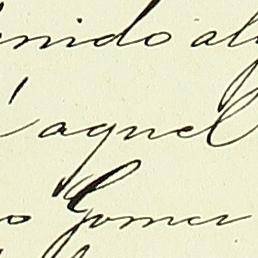 enido al
aquel
o Gomez